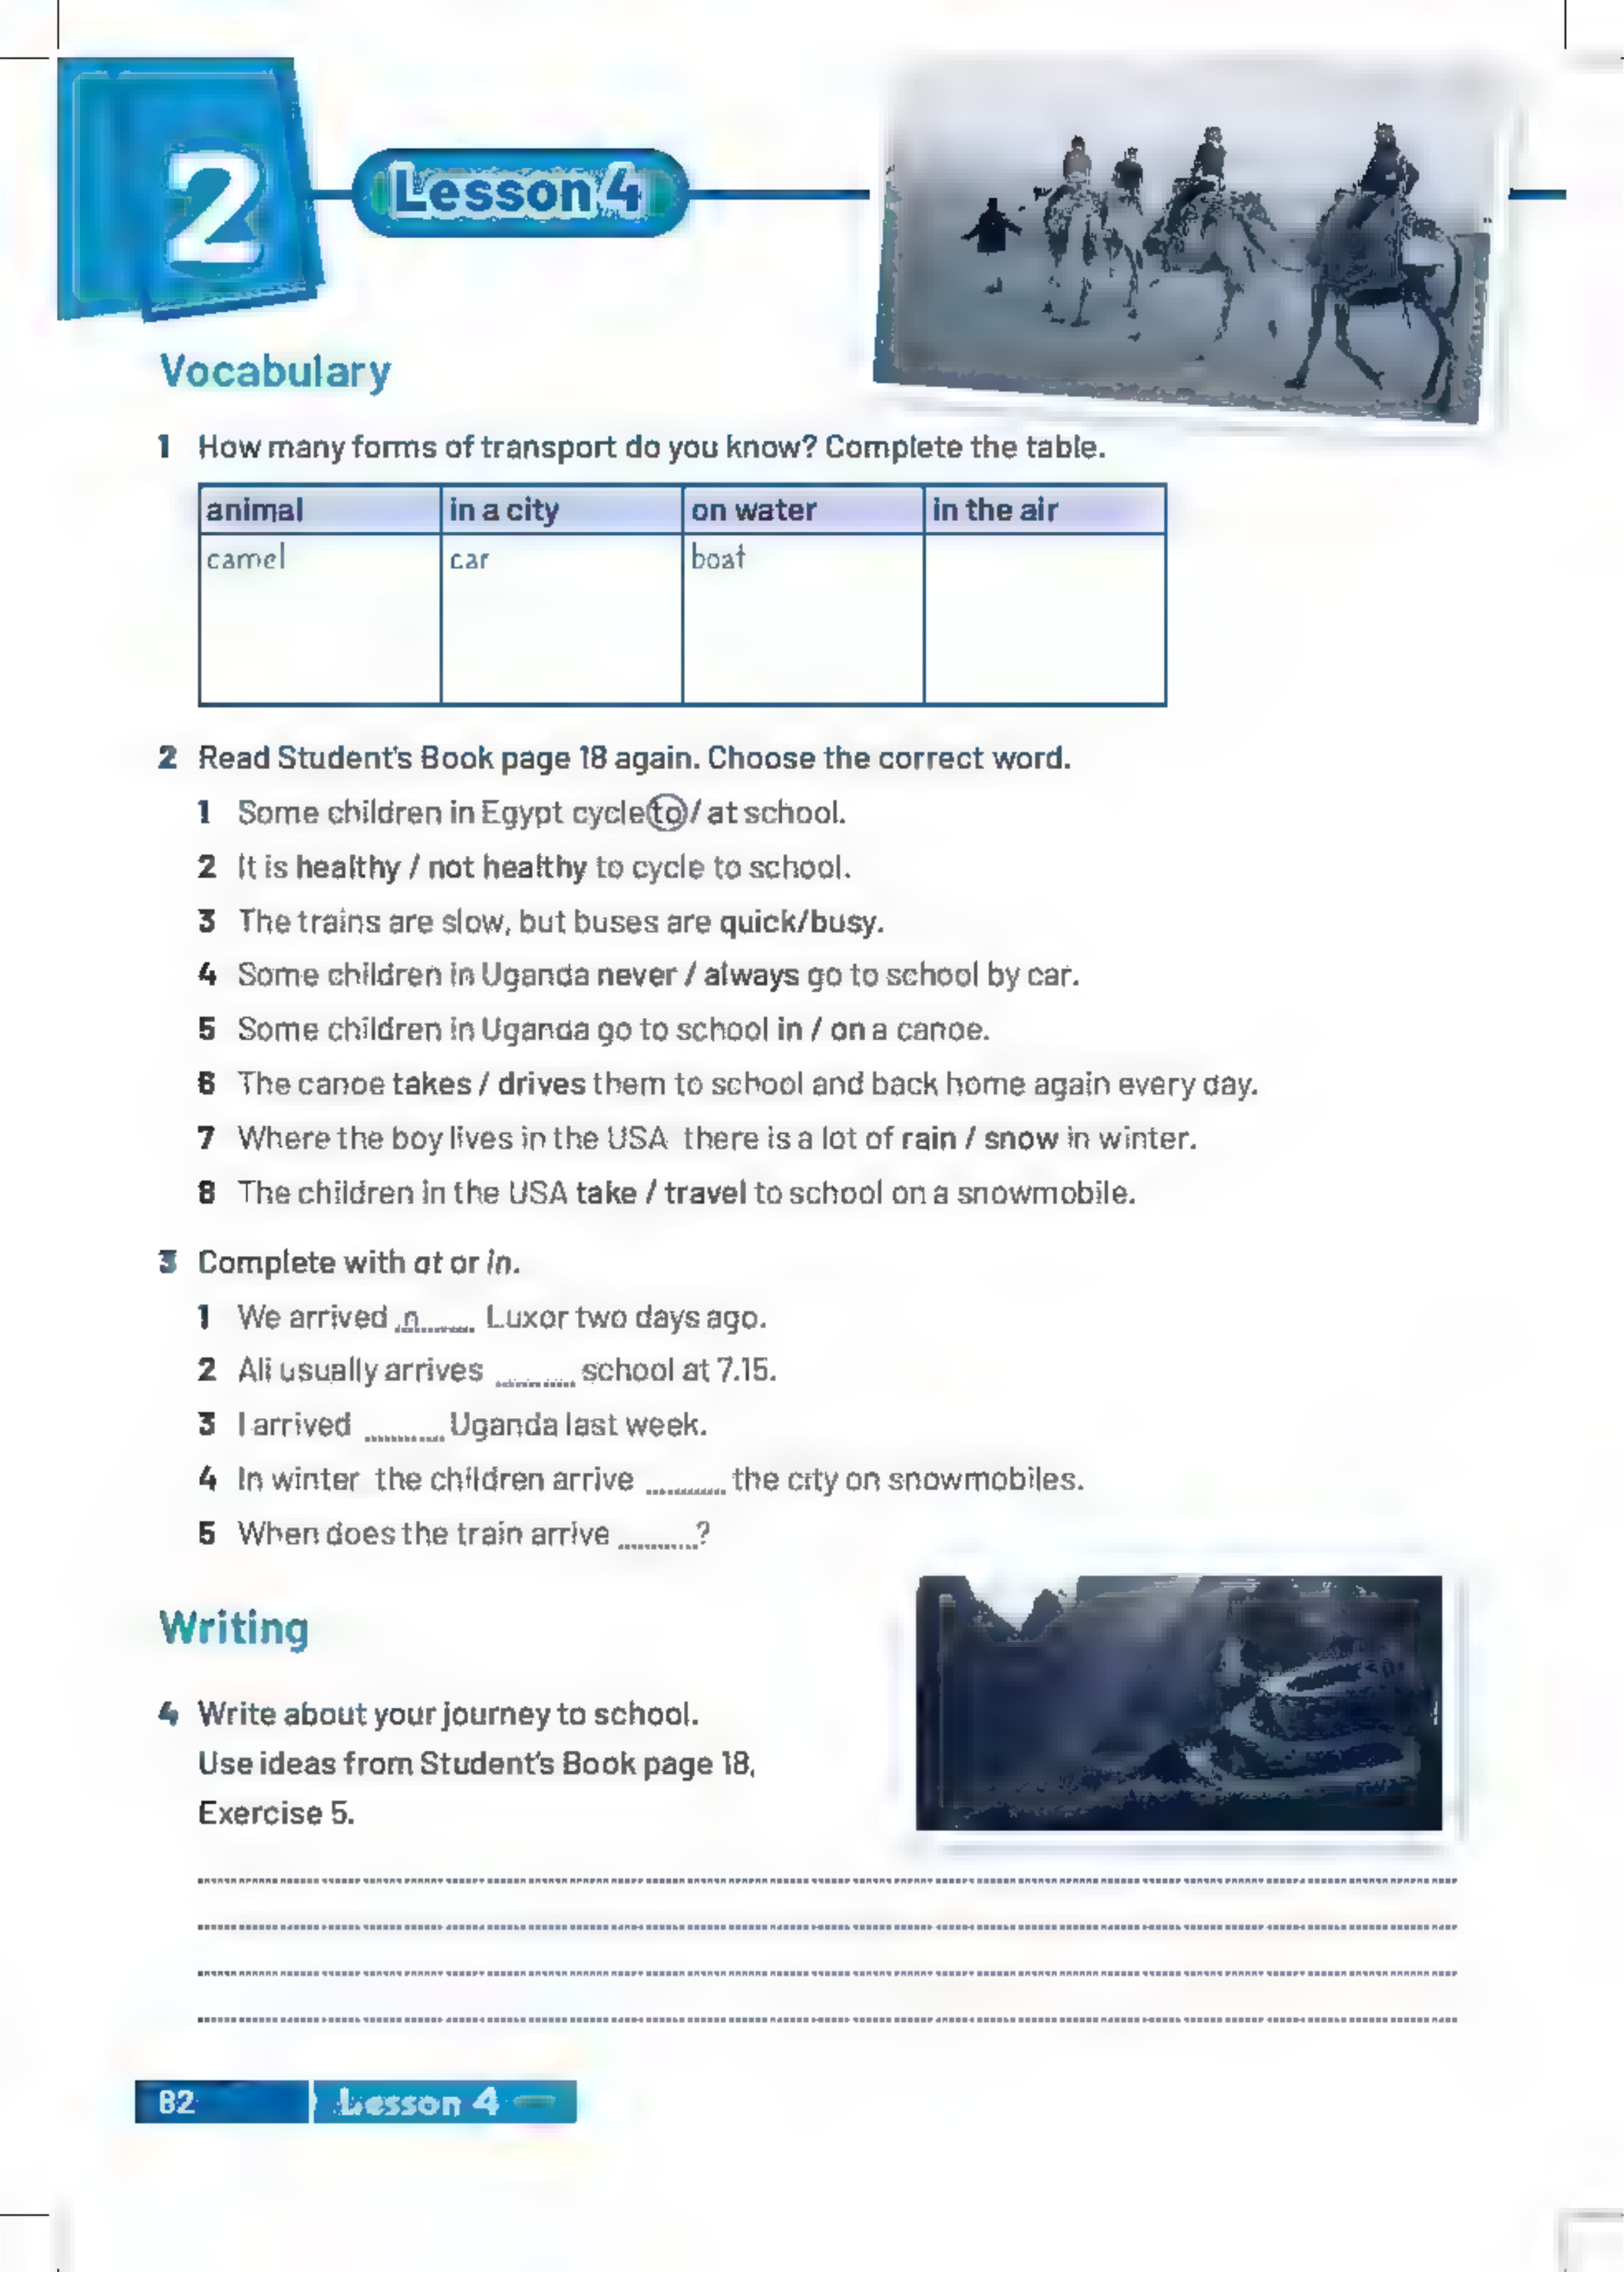 2
Lesson 4
Vocabulary
1 How many forms of transport do you know? Complete the table.
animal in a city on water in the air
camel car boat
2 Read Student's Book page 18 again. Choose the correct word.
1 Some children in Egypt cycle to / at school.
2 It is healthy / not healthy to cycle to school.
3 The trains are slow, but buses are quick/busy.
4 Some children in Uganda never / always go to school by car.
5 Some children in Uganda go to school in / on a canoe.
6 The canoe takes / drives them to school and back home again every day.
7 Where the boy lives in the USA there is a lot of rain / snow in winter.
8 The children in the USA take / travel to school on a snowmobile.
3 Complete with at or in.
1 We arrived n Luxor two days ago.
2 Ali usually arrives ........ school at 7.15.
3 I arrived ........ Uganda last week.
4 In winter the children arrive ........ the city on snowmobiles.
5 When does the train arrive ........?
Writing
4 Write about your journey to school.
Use ideas from Student's Book page 18,
Exercise 5.
82 Lesson 4